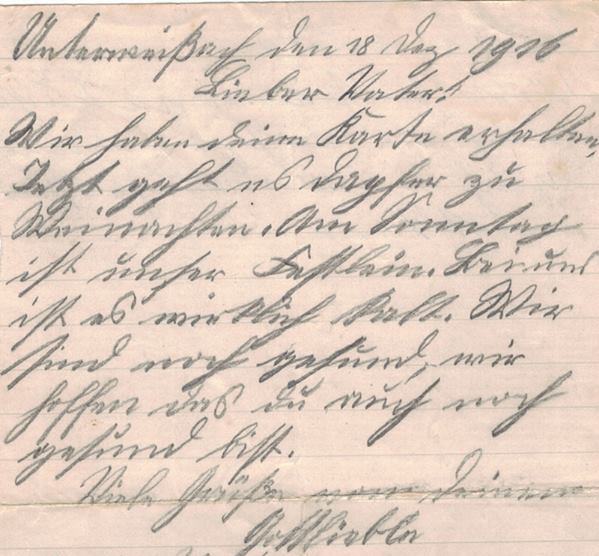 Unterweißach den 18 Dez 1916
Lieber Vater!
Wir haben deine Karte erhalten,
Jetzt geht es dapfer zu
Weinachten. Am Sonntag
ist unser Festlein. Bei uns
ist es wirklich kalt. Wir
sind noch gesund, wir
hoffen das du auch noch
gesund bist.
Viele Grüße von deinem
Gottlieble